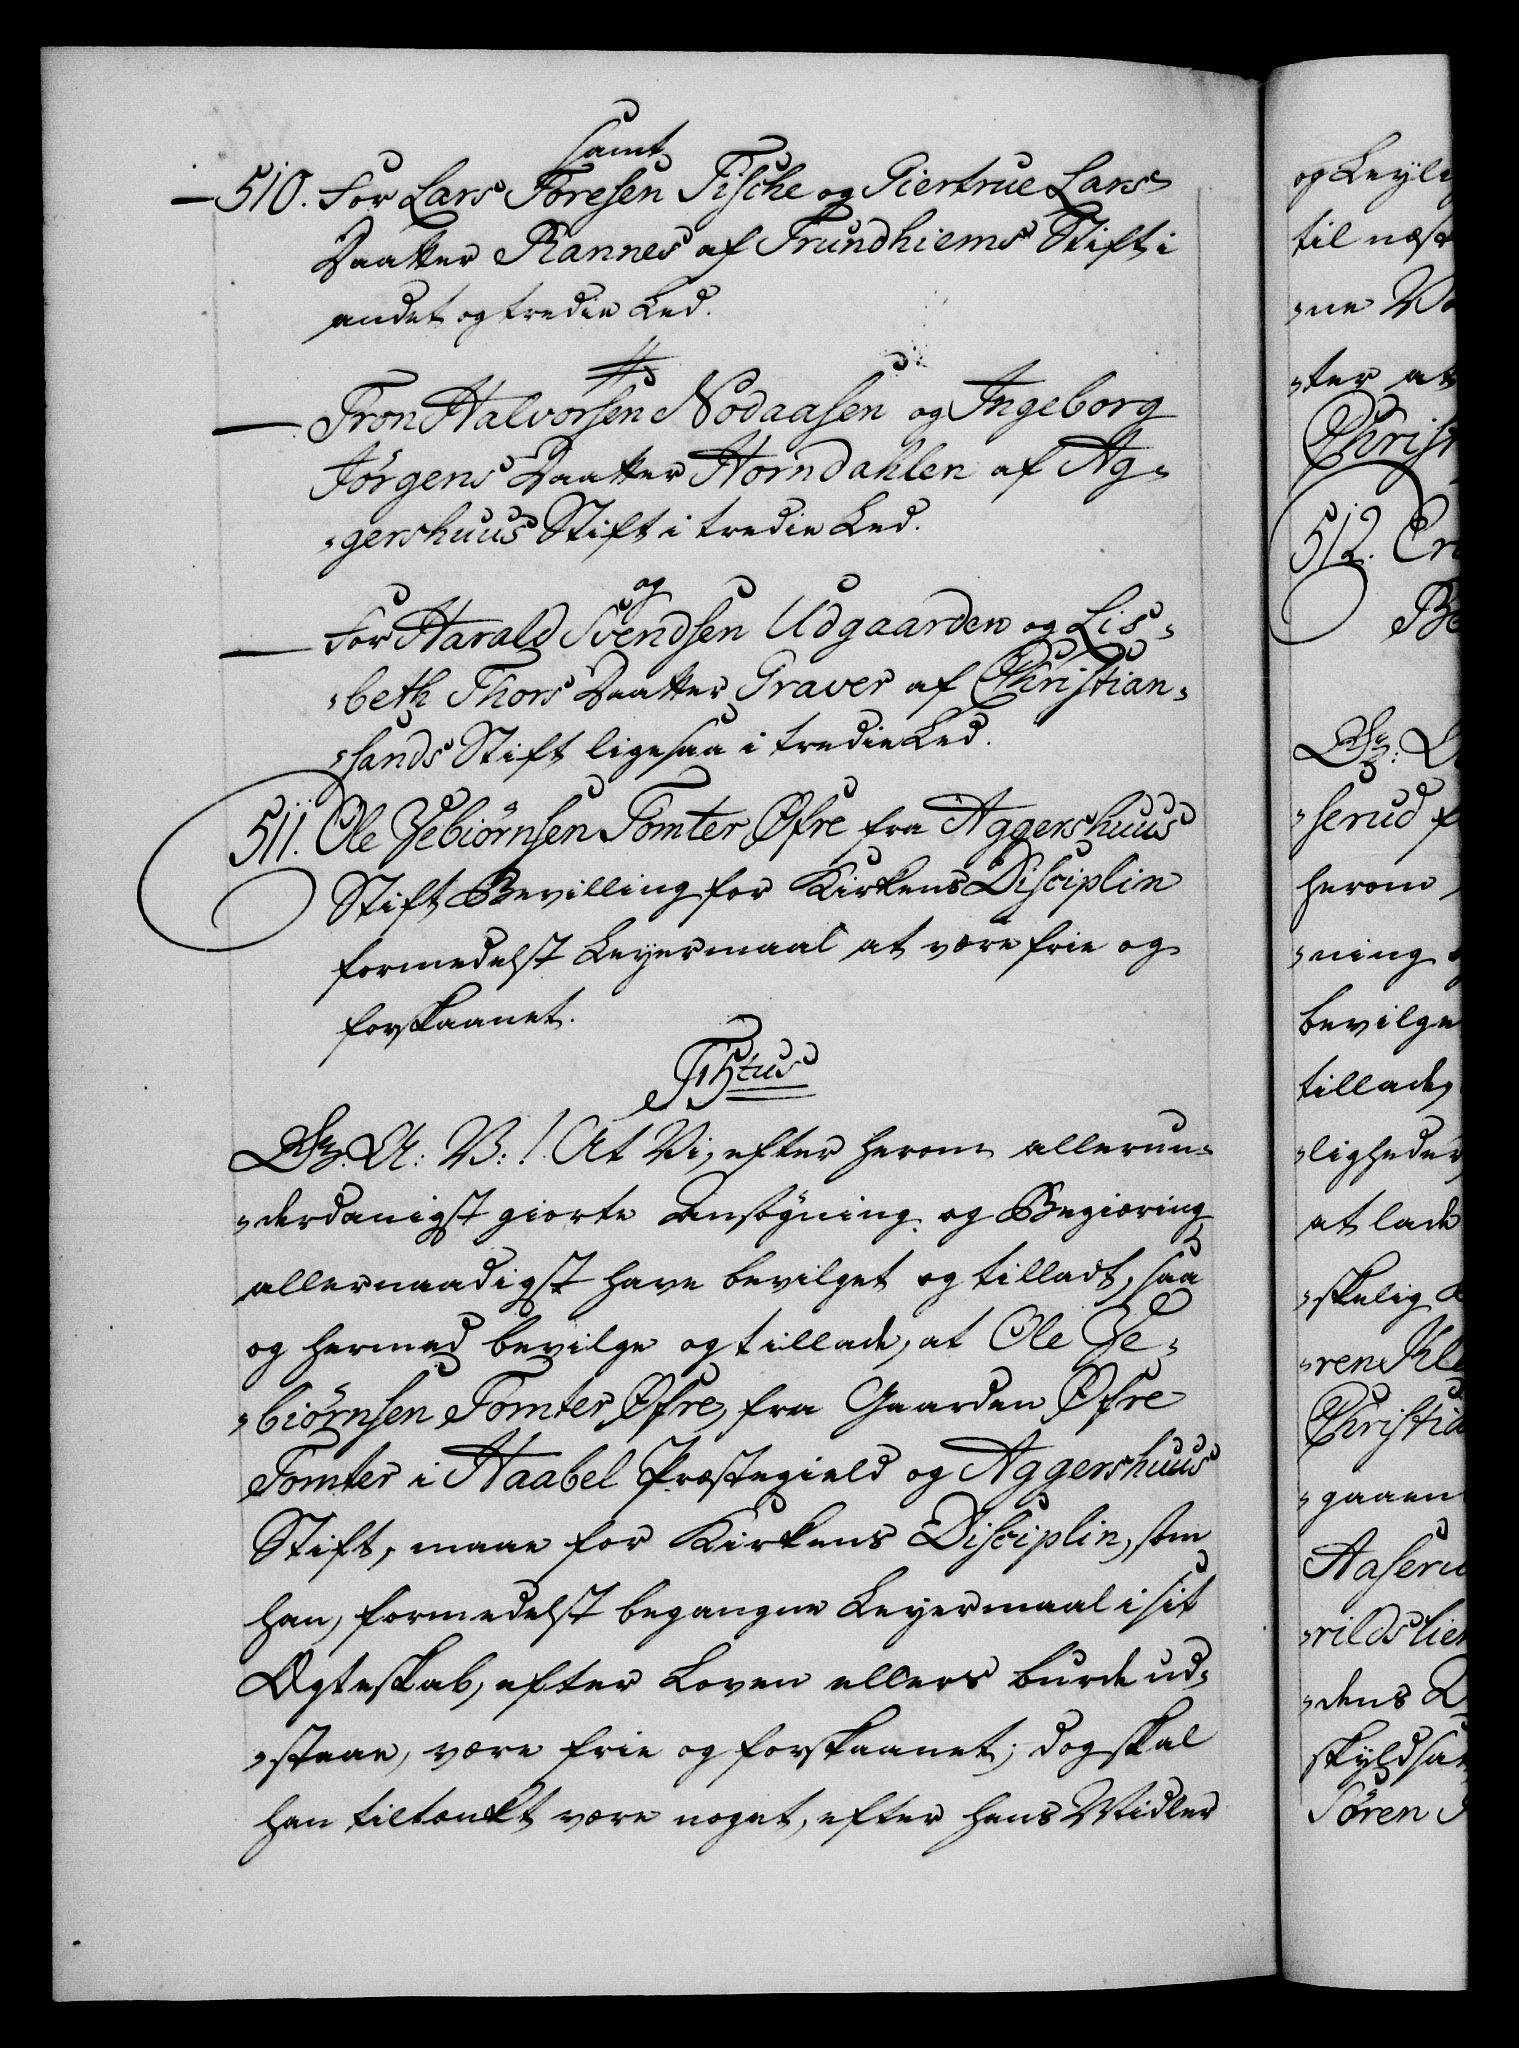 samt
510. For Lars Toresen Tische og Giertrue Lars
Daatter Rannes af Trundhiems Stift i
andet og tredie Led.
Tron Halvorsen Nodaasen og Ingeborg
Jörgens Daatter Horndahlen af Ag-
gershuus Stift i tredie Led.
og
For Harald Svendsen Udgaarden og Lis-
beth Thors Daatter Graver af Christian-
sands Stift ligesaa i tredie Led.
511. Ole Zebiörnsen Tomter Øfre fra Aggershuus
Stift Bevilling for Kirkens Disciplin
formedelst Leyermaal at være frie og
forskaanet.
G: A: V: ! At Vi, efter herom allerun-
derdanigst giorte Ansøgning og Begiæring
allernaadigst have bevilget og tilladt, saa
og hermed bevilge og tillade, at Ole Ze-
biörnsen Tomter Øfre, fra Gaarden Øfre
Tomter i Haabel Præstegield og Aggershuus
Stift, maae for Kirkens Disciplin, som
han, formedelst begangne Leyermaal i sit
Ægteskab, efter Loven ellers burde ud-
staae, være frie og forskaanet; dog skal
han tiltænkt være noget, efter hans Midler
og Leyl
til næst
ne
ter at
Christ
512. Er
Be
serud f
herom
ning
bevilge
tillade,
ligheder
at lade
skelig
ren Kle
Christia
gaaen
Aaseru
rilds lien
dens
skyldsat
Sören